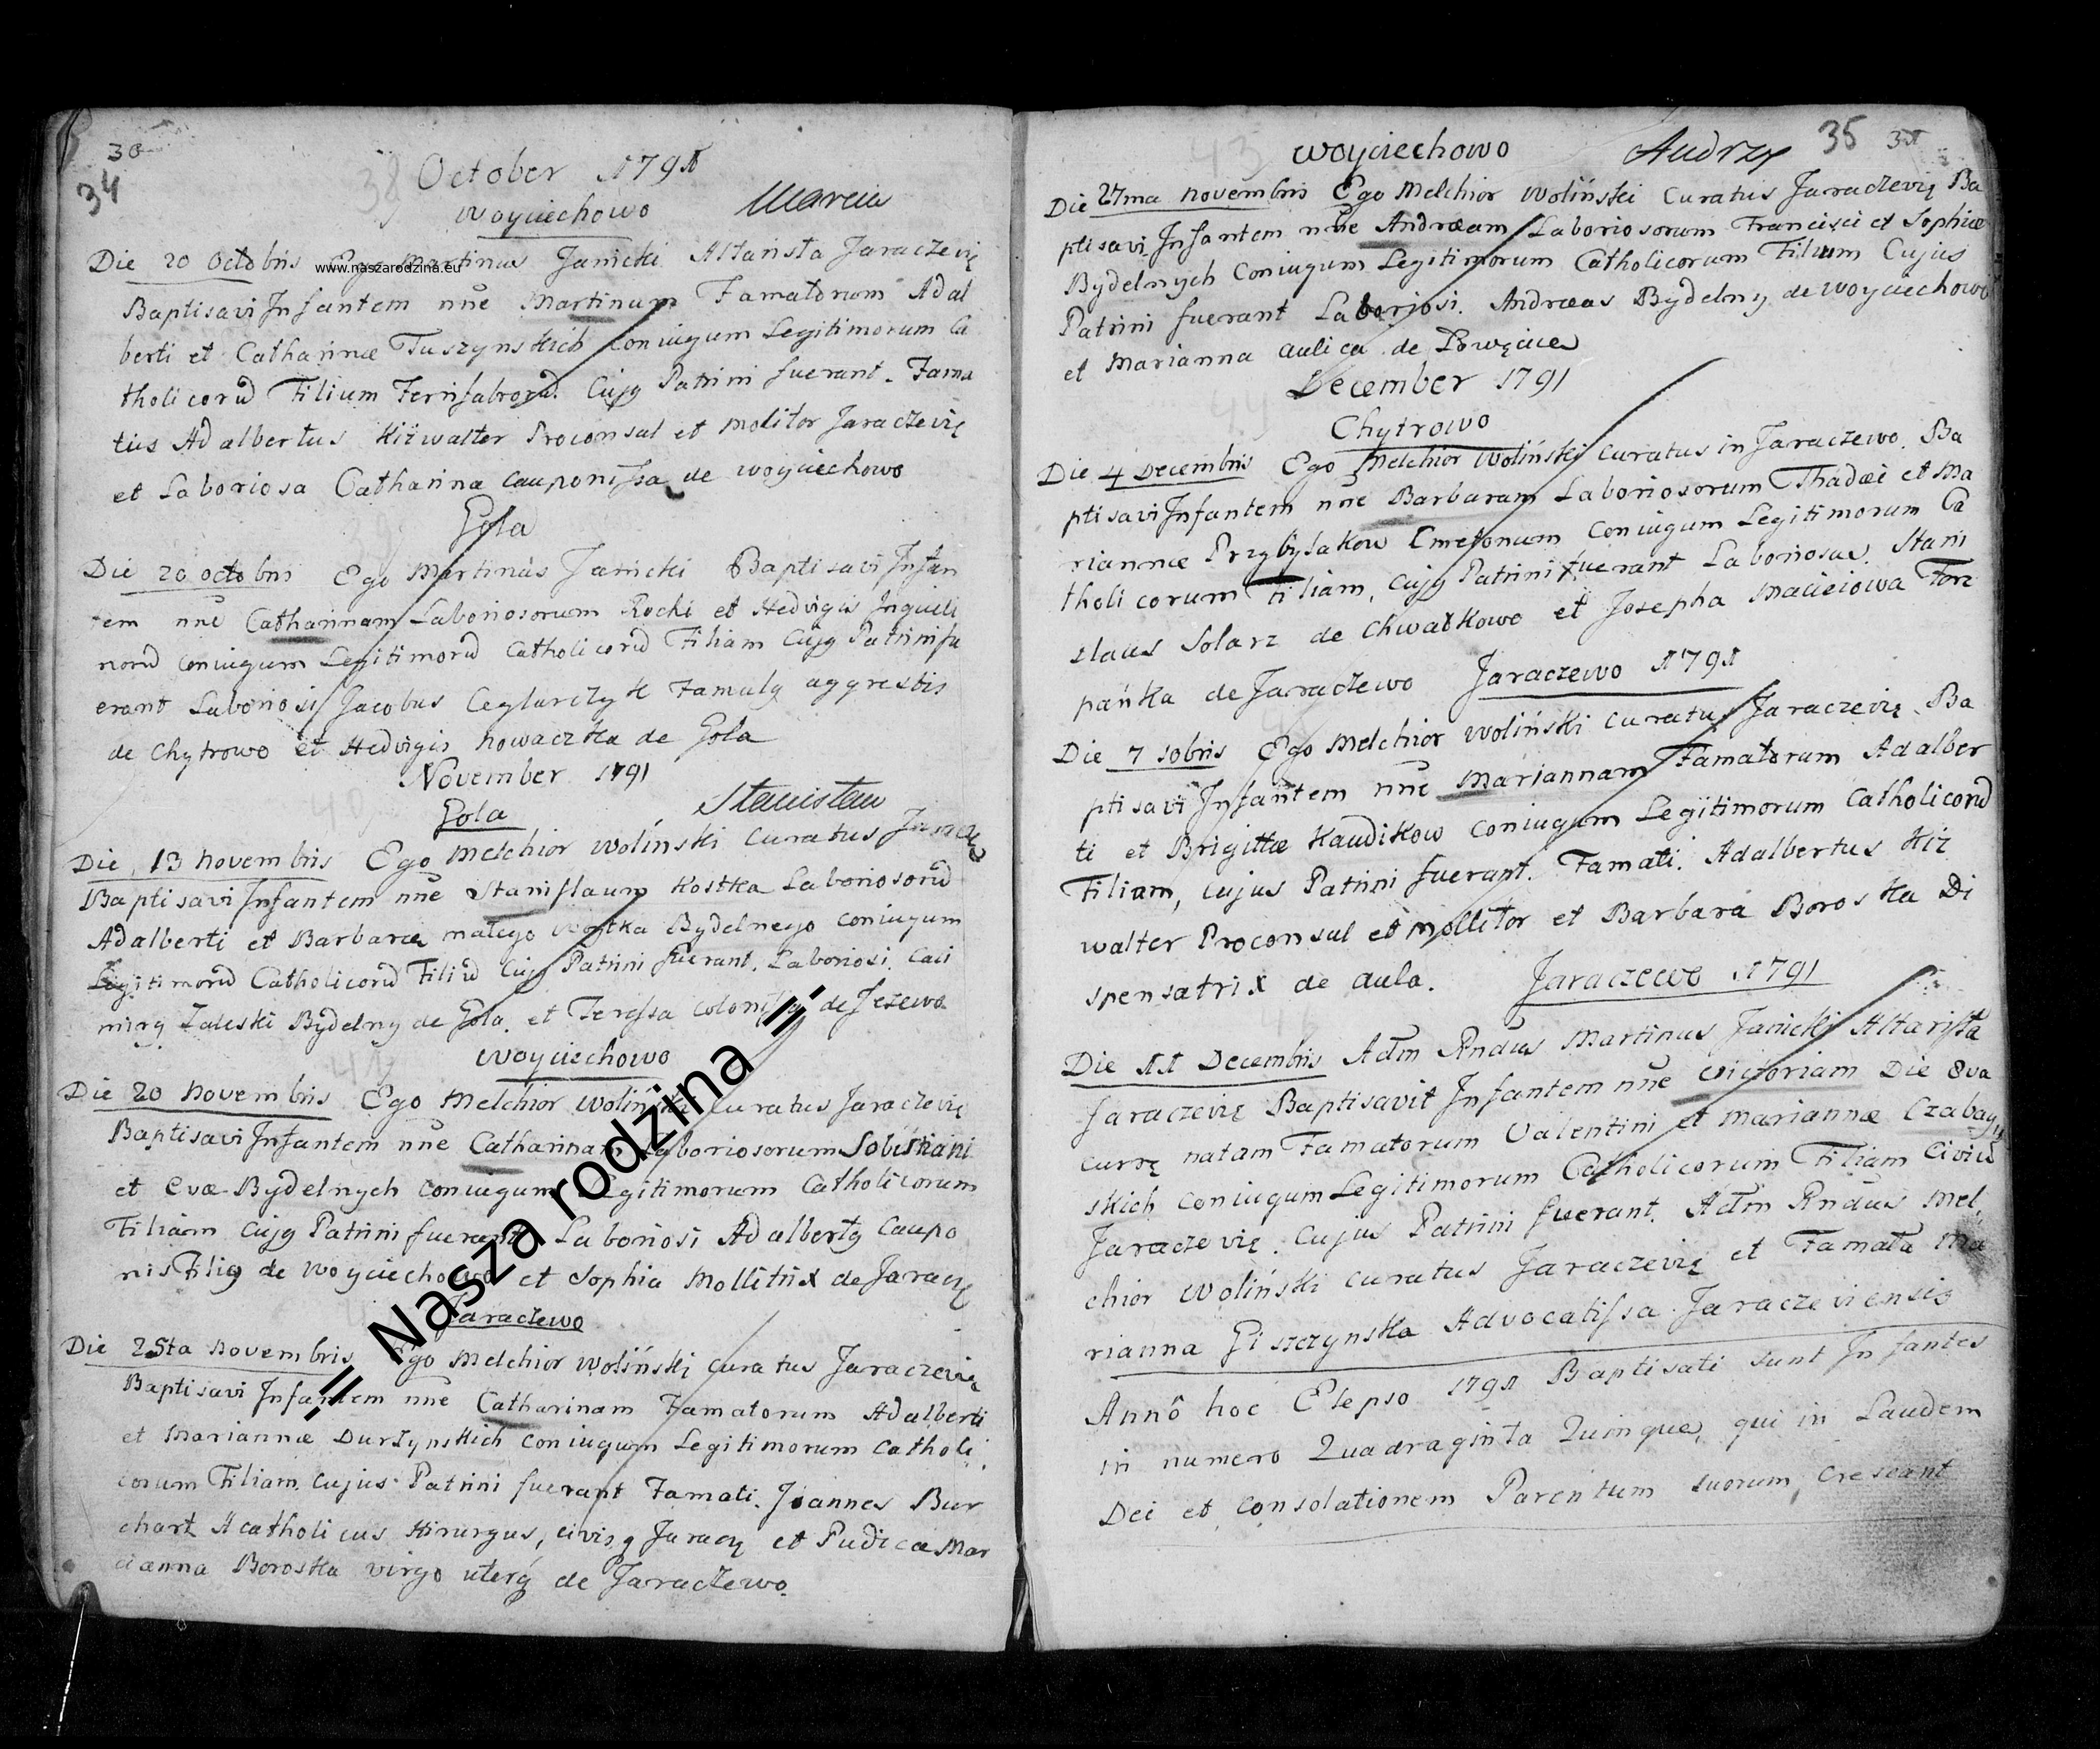 30
34
October 1791
Woyciechowo Marcin
Die 20 Octobris Ego Martinus Janicki Altarista Jaraczevię
www.naszarodzina.eu
Baptisavi Infantem nne Martinum Famatorum Adal
berti et Catharinæ Tuszynskich Coniugum Legitimorum Ca
tholicorũ Filium Ferrifabrorũ. Cujq Patrini fuerant. Fama
tus Adalbertus Kizwalter Proconsul et Molitor Jaraczevię
et Laboriosa Catharina Cauponissa de Woyciechowo
Gola
Die 20 octobris Ego Martinus Janicki Baptisavi Infan
tem nne Catharinam Laboriosorum Rochi et Hedvigis Inquili
norũ Coniugum Legitimorũ Catholicorũ Filiam Cujq Patrini fu
erant Laboriosi Jacobus Ceglarczyk Famulq aggrestis
de Chytrowo et Hedvigis Nowaczka de Gola
November 1791
Gola Stanisław
Die 13 Novembris Ego Melchior Woliński Curatus Jaraczę
Baptisavi Infantem nne Stanislaum Kostka Laboriosorũ
Adalberti et Barbaræ małego Kostka Bydelnego Coniugum
Legitimorũ Catholicorũ Filiũ Cujq Patrini fuerant. Laboriosi. Casi
mirq Zaleski Bydelny de Gola. et Teressa Colonissa de Jezewo
Woyciechowo
Die 20 Novembris Ego Melchior Woliński Curatus Jaraczevię
Baptisavi Infantem nne Catharinam Laboriosorum Sobistiani
et Evæ Bydelnych Coniugum Legitimorum Catholicorum
Filiam Cujq Patrini fuerant Laboriosi Adalbertq Caupo
nis Filiq de Woyciechowo et Sophia Mollitrix de Jaraczę
Jaraczewo
Die 25ta Novembris Ego Melchior Woliński Curatus Jaraczevię
Baptisavi Infantem nne Catharinam Famatorum Adalberti
et Mariannæ Durzynskich Coniugum Legitimorum Catholi
corum Filiam. Cujus Patrini fuerant Famati. Joannes Bur
chart Acatholicus Hirurgus, Civisq Jaraczę et Pudica Mar
ianna Boroska virgo uterq de Jaraczewo.
-= Nasza rodzina =-
Woyciechowo Andrzy 35
Die 27ma Novembris Ego Melchior Woliński Curatus Jaraczevię Ba
ptisavi Infantem nne Andræam Laboriosorum Francisci et Sophiæ
Bydelnych Coniugum Legitimorum Catholicorum Filium Cujus
Patrini fuerant Laboriosi. Andræas Bydelny de Woyciechowo
et Marianna aulica de
December 1791
Chytrowo
Die 4 Decembris Ego Melchior Woliński Curatus in Jaraczewo. Ba
ptisavi Infantem nne Barbaram Laboriosorum Thadæi et Ma
riannæ Przybylakow Cmetonum Coniugum Legitimorum Ca
tholicorum Filiam, Cujq Patrini fuerant Laboriosus. Stani
slaus Solarz de Chwałkowo et Josepha Macieiowa Forz
pańka de Jaraczewo Jaraczewo 1791
Die 7 10bris Ego Melchior Woliński Curatus Jaraczevię. Ba
ptisavi Infantem nne Mariannam Famatorum Adalber
ti et Brigittæ Kaudikow Coniugum Legitimorum Catholicorũ
Filiam, Cujus Patrini fuerant. Famati. Adalbertus Kiz
walter Proconsul et Mollitor et Barbara Boroska Di
spensatrix de aula. Jaraczewo 1791
Die 11 Decembris Adm Rndus Martinus Janicki Altarista
Jaraczevię Baptisavit Infantem nne Victoriam Die 8va
currę natam Famatorum Valentini et Mariannæ Czabay
skich Coniugum Legitimorum Catholicorum Filiam Civiũ
Jaraczevię. Cujus Patrini fuerant. Adm Rndus Mel.
chior Woliński Curatus Jaraczevię et Famata Ma
rianna Giszczynska Advocatissa Jaraczeviensis
Annô hoc Elepso 1791 Baptisati sunt Infantes
in numero Quadraginta Quinque, qui in Laudem
Dei et consolationem Parentum suorum, Crescant